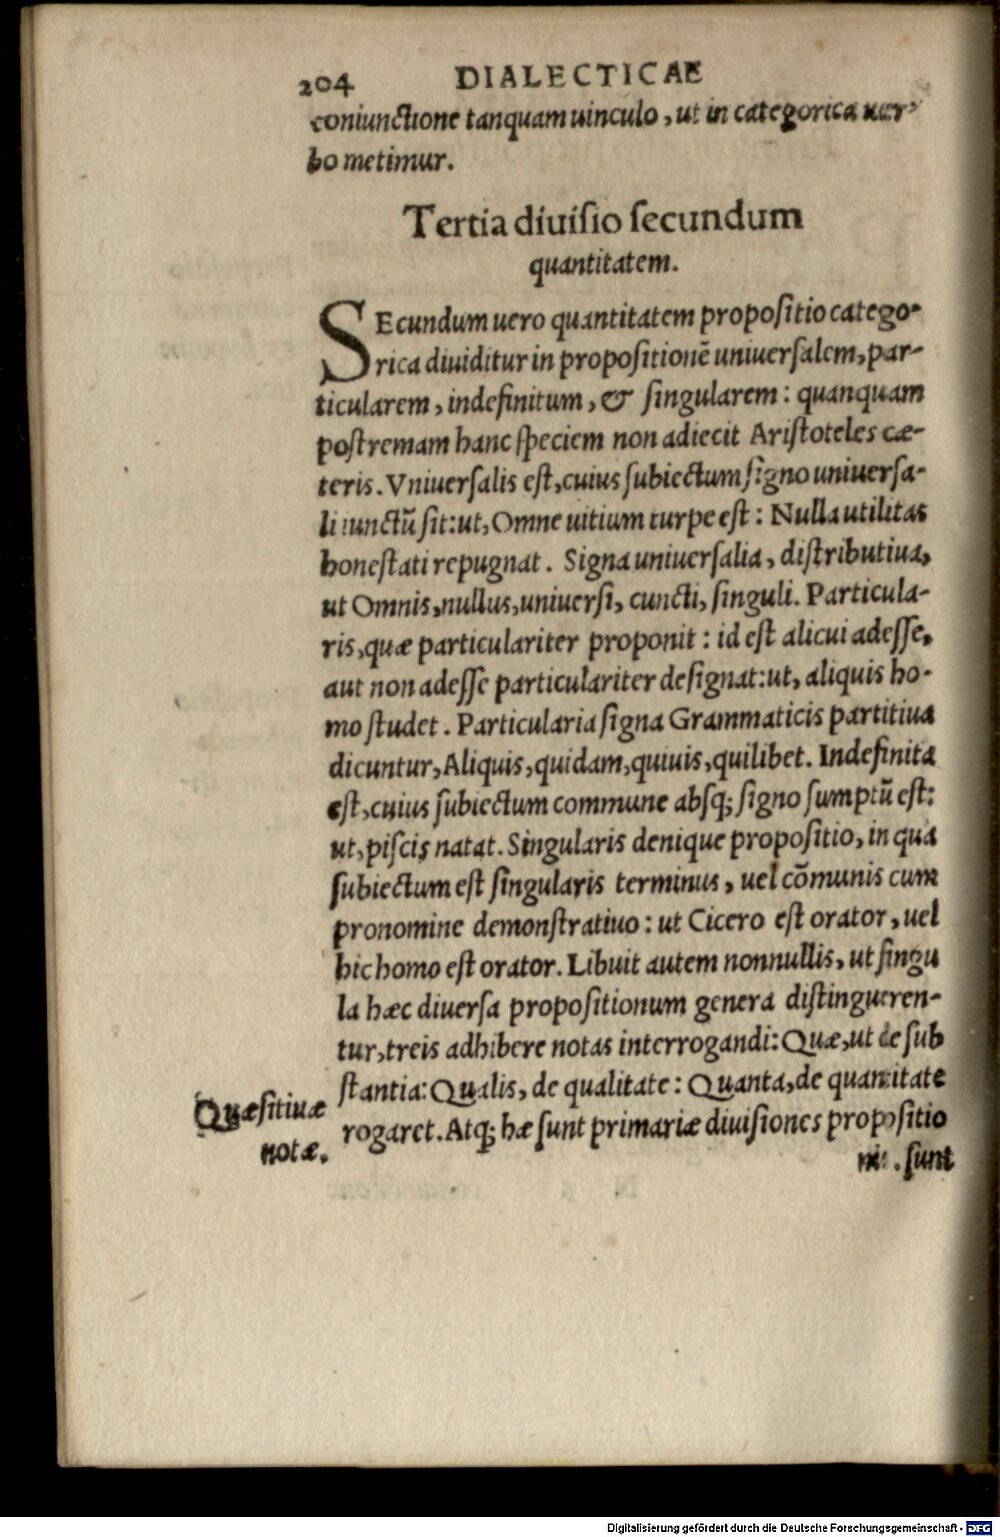 204 DIALECTICAE
coniunctione tanquam uinculo, ut in categorica uer-
bo metimur.
Tertia diuisio secundum
quantitatem.
SEcundum uero quantitatem propositio catego-
rica diuiditur in propositionē uniuersalem, par-
ticularem, indefinitum, & singularem: quanquam
postremam hanc speciem non adiecit Aristoteles cæ-
teris. Vniuersalis est, cuius subiectum signo uniuersa-
li iunctū sit: ut, Omne uitium turpe est: Nulla utilitas
honestati repugnat. Signa uniuersalia, distributiua,
ut Omnis, nullus, uniuersi, cuncti, singuli. Particula-
ris, quæ particulariter proponit: id est alicui adesse,
aut non adesse particulariter designat: ut, aliquis ho-
mo studet. Particularia signa Grammaticis partitiua
dicuntur, Aliquis, quidam, quiuis, quilibet. Indefinita
est, cuius subiectum commune absq; signo sumptū est:
ut, piscis natat. Singularis denique propositio, in qua
subiectum est singularis terminus, uel cōmunis cum
pronomine demonstratiuo: ut Cicero est orator, uel
hic homo est orator. Libuit autem nonnullis, ut singu
la hæc diuersa propositionum genera distingueren-
tur, treis adhibere notas interrogandi: Quæ, ut de sub
stantia: Qualis, de qualitate: Quanta, de quantitate
Quæsitiuæ
notæ.
rogaret. Atq; hæ sunt primariæ diuisiones propositio
sunt
Digitalisierung gefördert durch die Deutsche Forschungsgemeinschaft - DFG